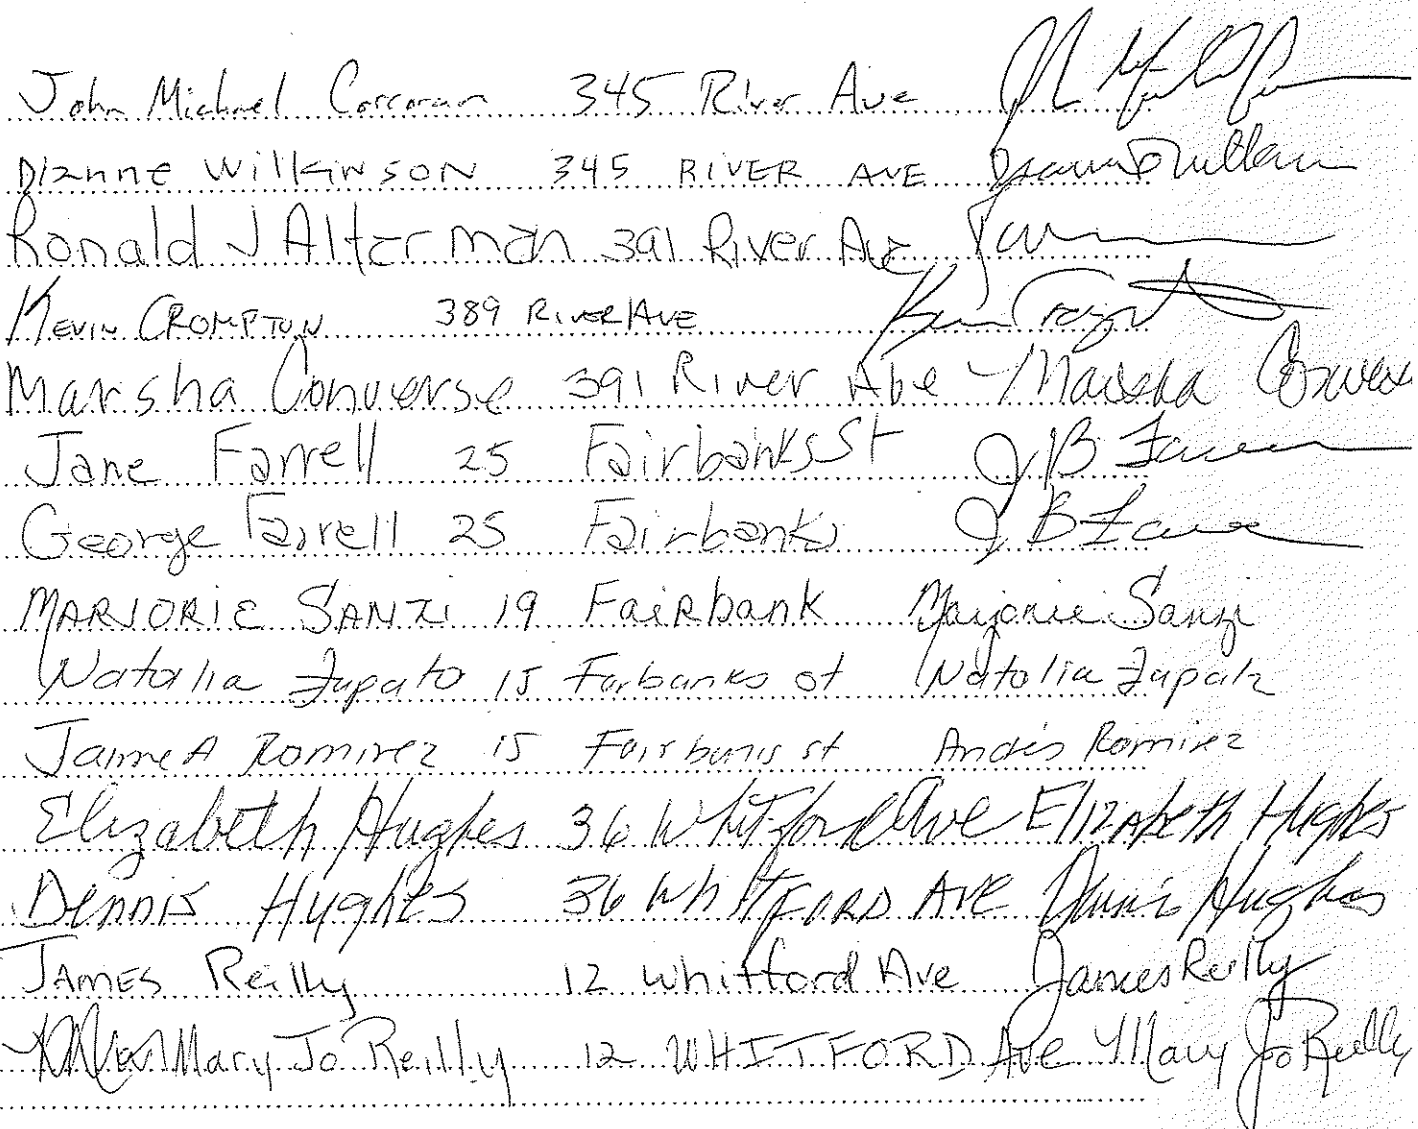 John Michael Corcoran 345 River Ave
Dianne Wilkinson 345 RIVER AVE
Ronald J Alterman 391 River Ave
Kevin CROMPTON 389 RIVER AVE
Marsha Converse 391 River Ave Marsha Converse
Jane Farrell 25 Fairbanks St J B
George Farrell 25 Fairbanks J B
MARJORIE SANZI 19 Fairbank Marjorie Sanzi
Natalia Zupato 15 Farbanks st Natalia
Jaime A Ramirez 15 st Andrés Ramirez
Elizabeth Hughes 36 Whitford Ave Elizabeth Hughes
Dennis Hughes 36 Whitford AVE Dennis Hughes
JAMES Reilly 12 Whitford Ave James Reilly
Mary Jo Reilly 12 WHITFORD Ave Mary Jo Reilly